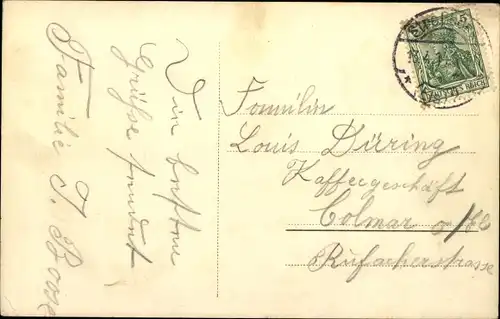 Die besten
Grüße sendet
Familie J. Boos
Familie
Louis Düring
Kaffeegeschäft
Colmar
Rufacherstrasse